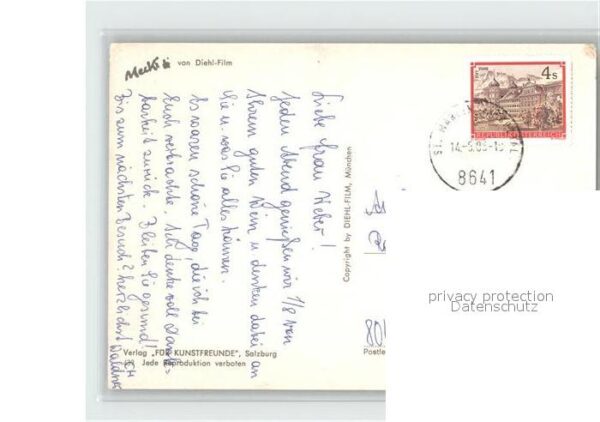 Mecki von Diehl-Film
Liebe Frau Weber!
Jeden Abend genießen wir 1/8 von
Ihrem guten Wein u. denken dabei an
Sie u. was Sie alles können.
Es waren schöne Tage, die ich bei
Euch verbrachte. Ich denke voll Dank-
barkeit zurück. Bleiben Sie gesund!
Bis zum nächsten Besuch! herzlichst
Copyright by DIEHL-FILM, München
Verlag „FÜR KUNSTFREUNDE", Salzburg
Jede Reproduktion verboten
4s
REPUBLIK ÖSTERREICH
8641
801
Postle
privacy protection
Datenschutz